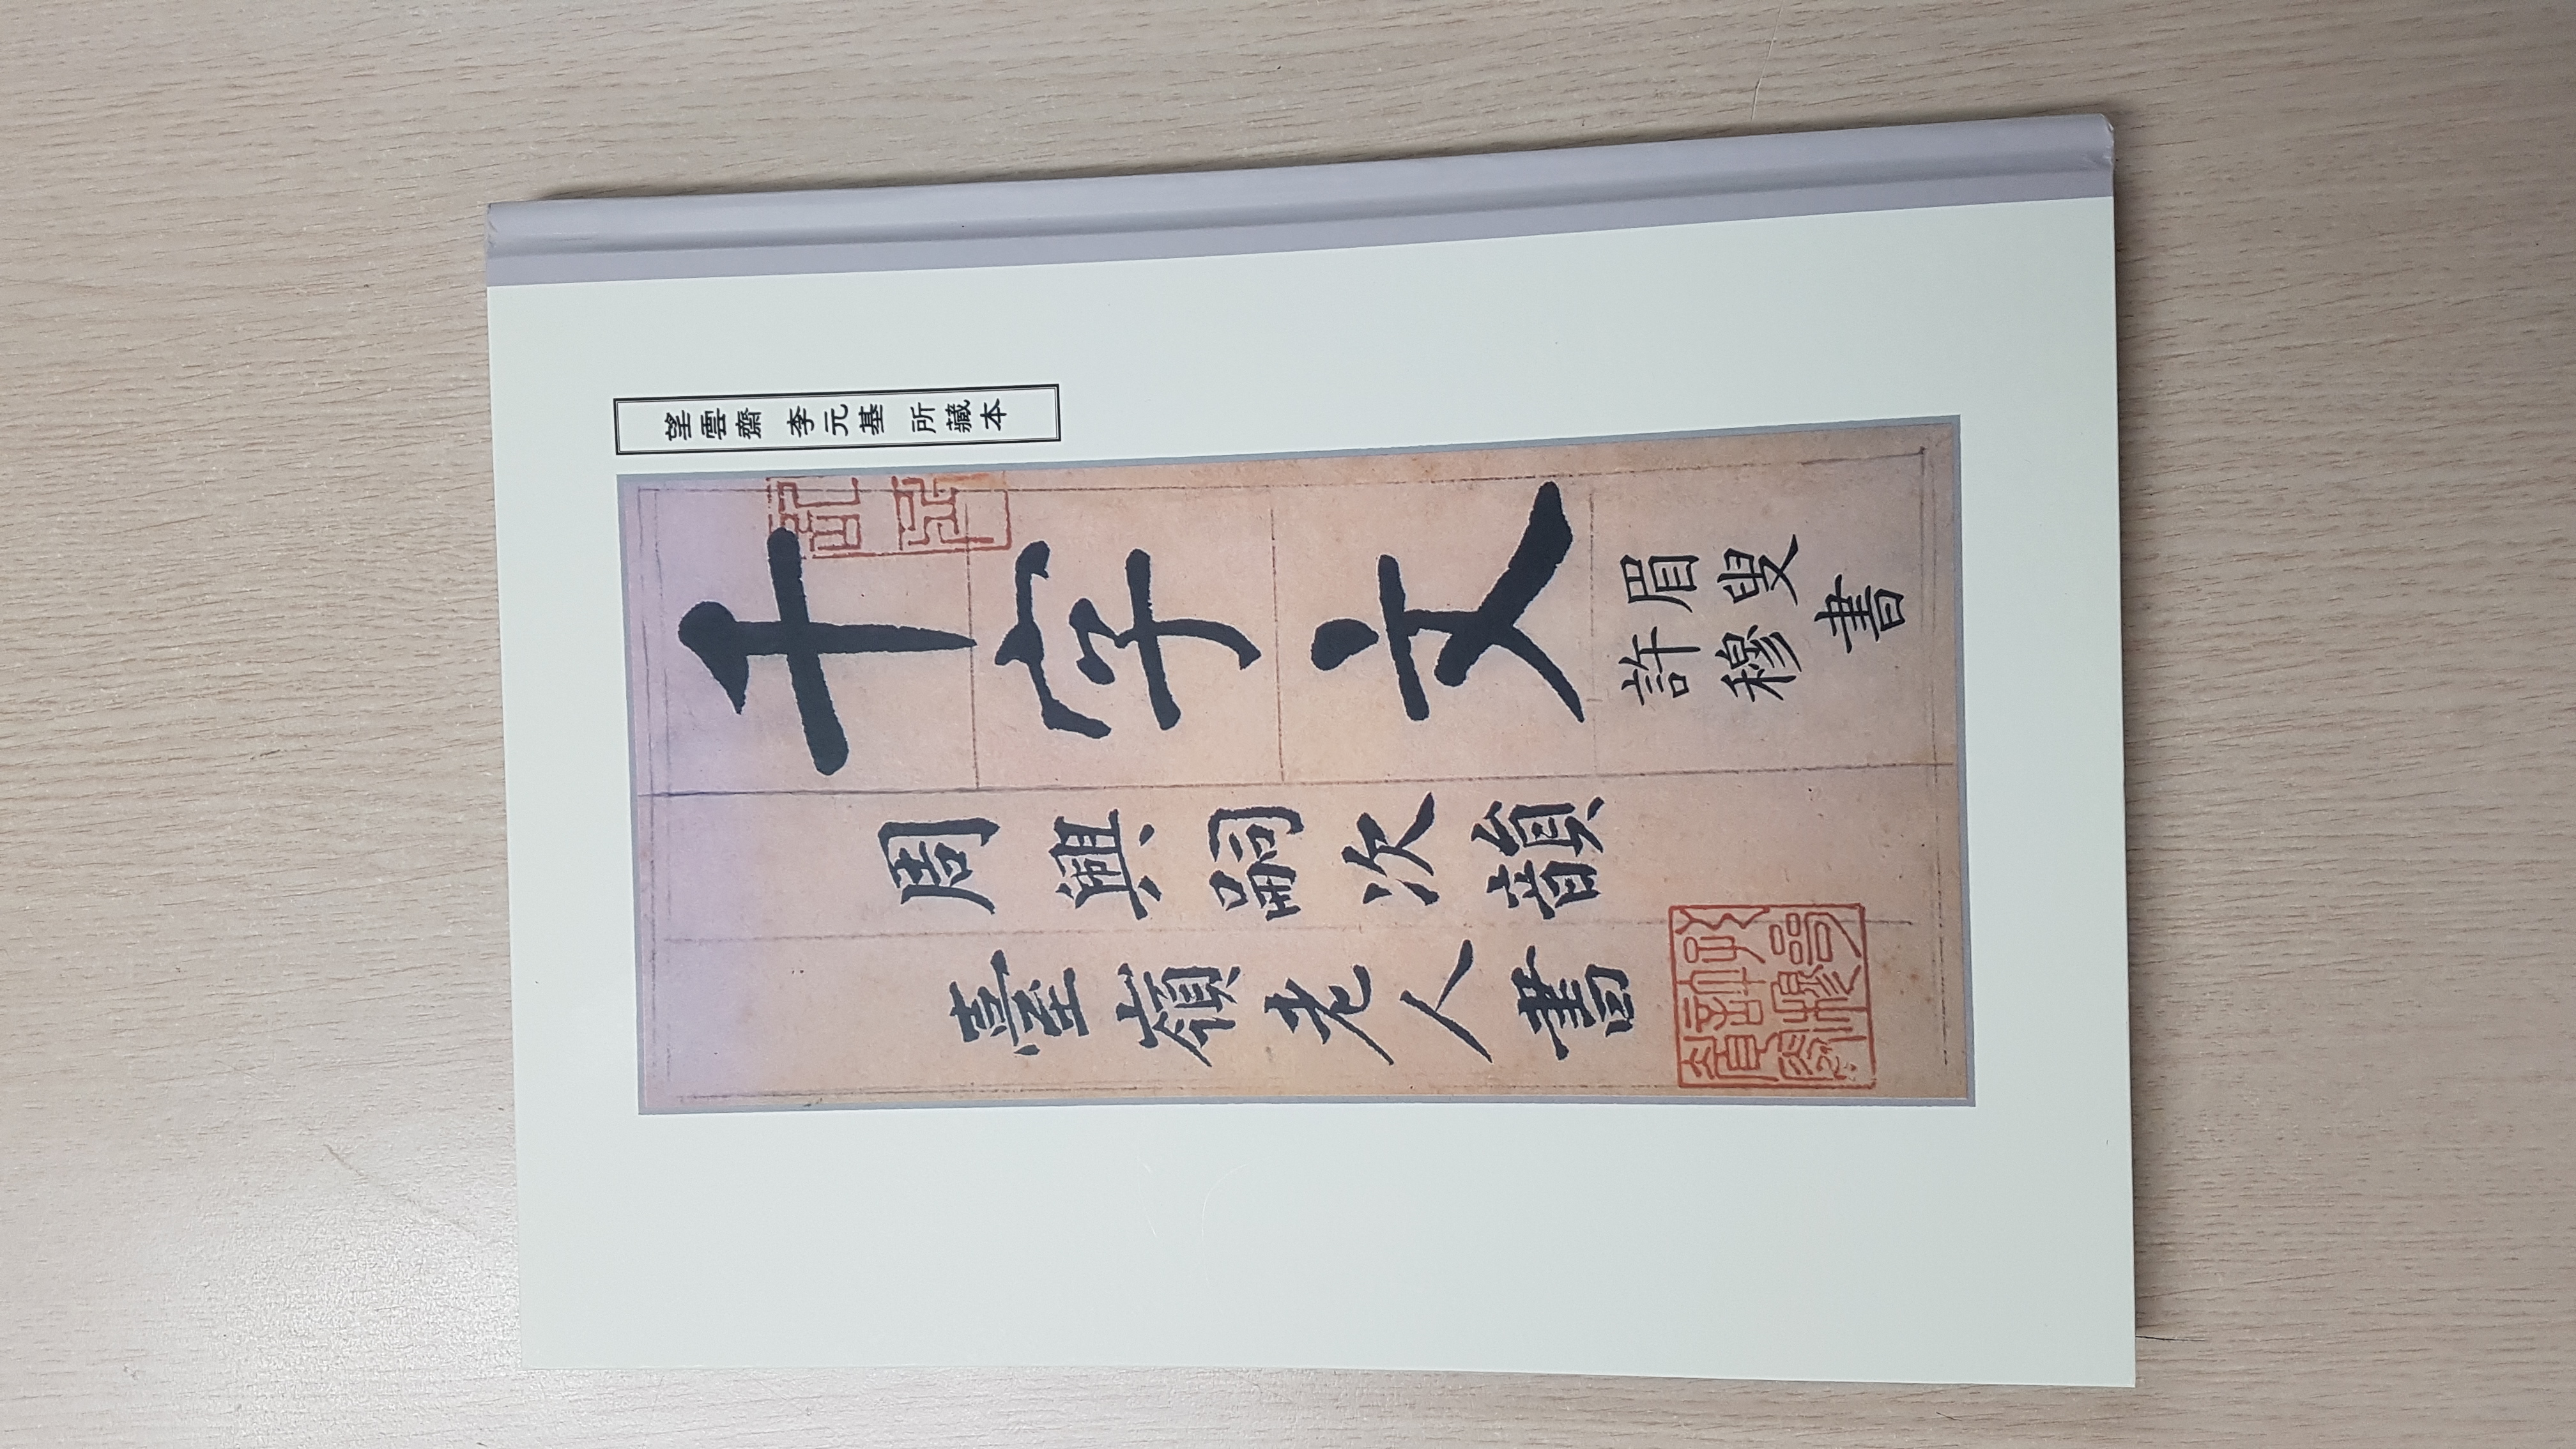 望雲齋 李元基 所藏本
千字文
眉叟
許穆
書
周興嗣次韻
臺嶺老人書